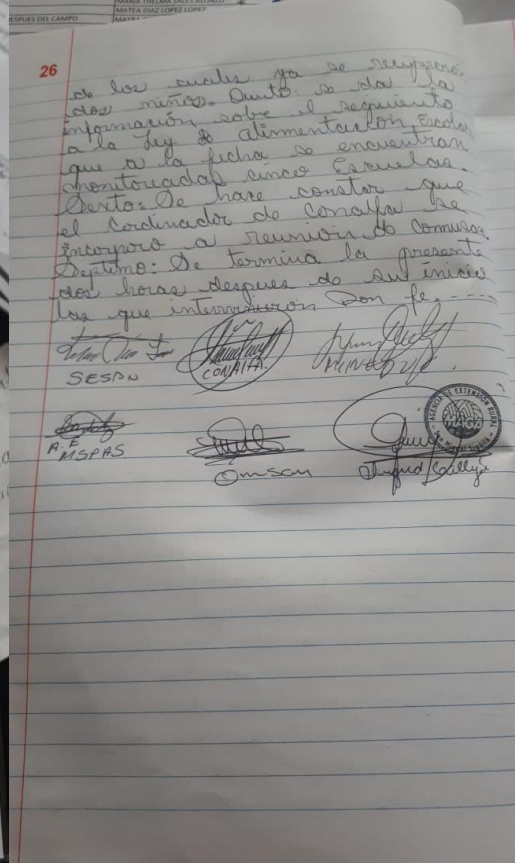 MATEA DIAZ LOPEZ LOPEZ
DESPUES DEL CAMPO
26
de los cuales ya se recupero.
dos niños. Quinto: se da la
información sobre el seguiento
a la Ley de alimentación Escolar
que a la fecha se encuentran
monitoreadas cinco Escuelas.
Sexto: Se hace constar que
el Cordinador de Conalfa se
incorporo a reunion de Comusan.
Septimo: Se termina la presente
dos horas despues de su inicio
las que intervinieron Don fe.
SESAN
CONALFA
MINEDUC
A.E
MSPAS
Omsan
AGENCIA DE EXTENSIÓN RURAL